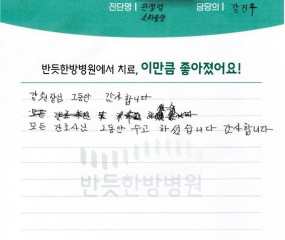 진단명 | 관절염
소화불량
담당의 | 강진우
반듯한방병원에서 치료, 이만큼 좋아졌어요!
강원장님 그동안 감사합니다
모든 간호사님 그동안 수고 하셨습니다 감사합니다
반듯한방병원